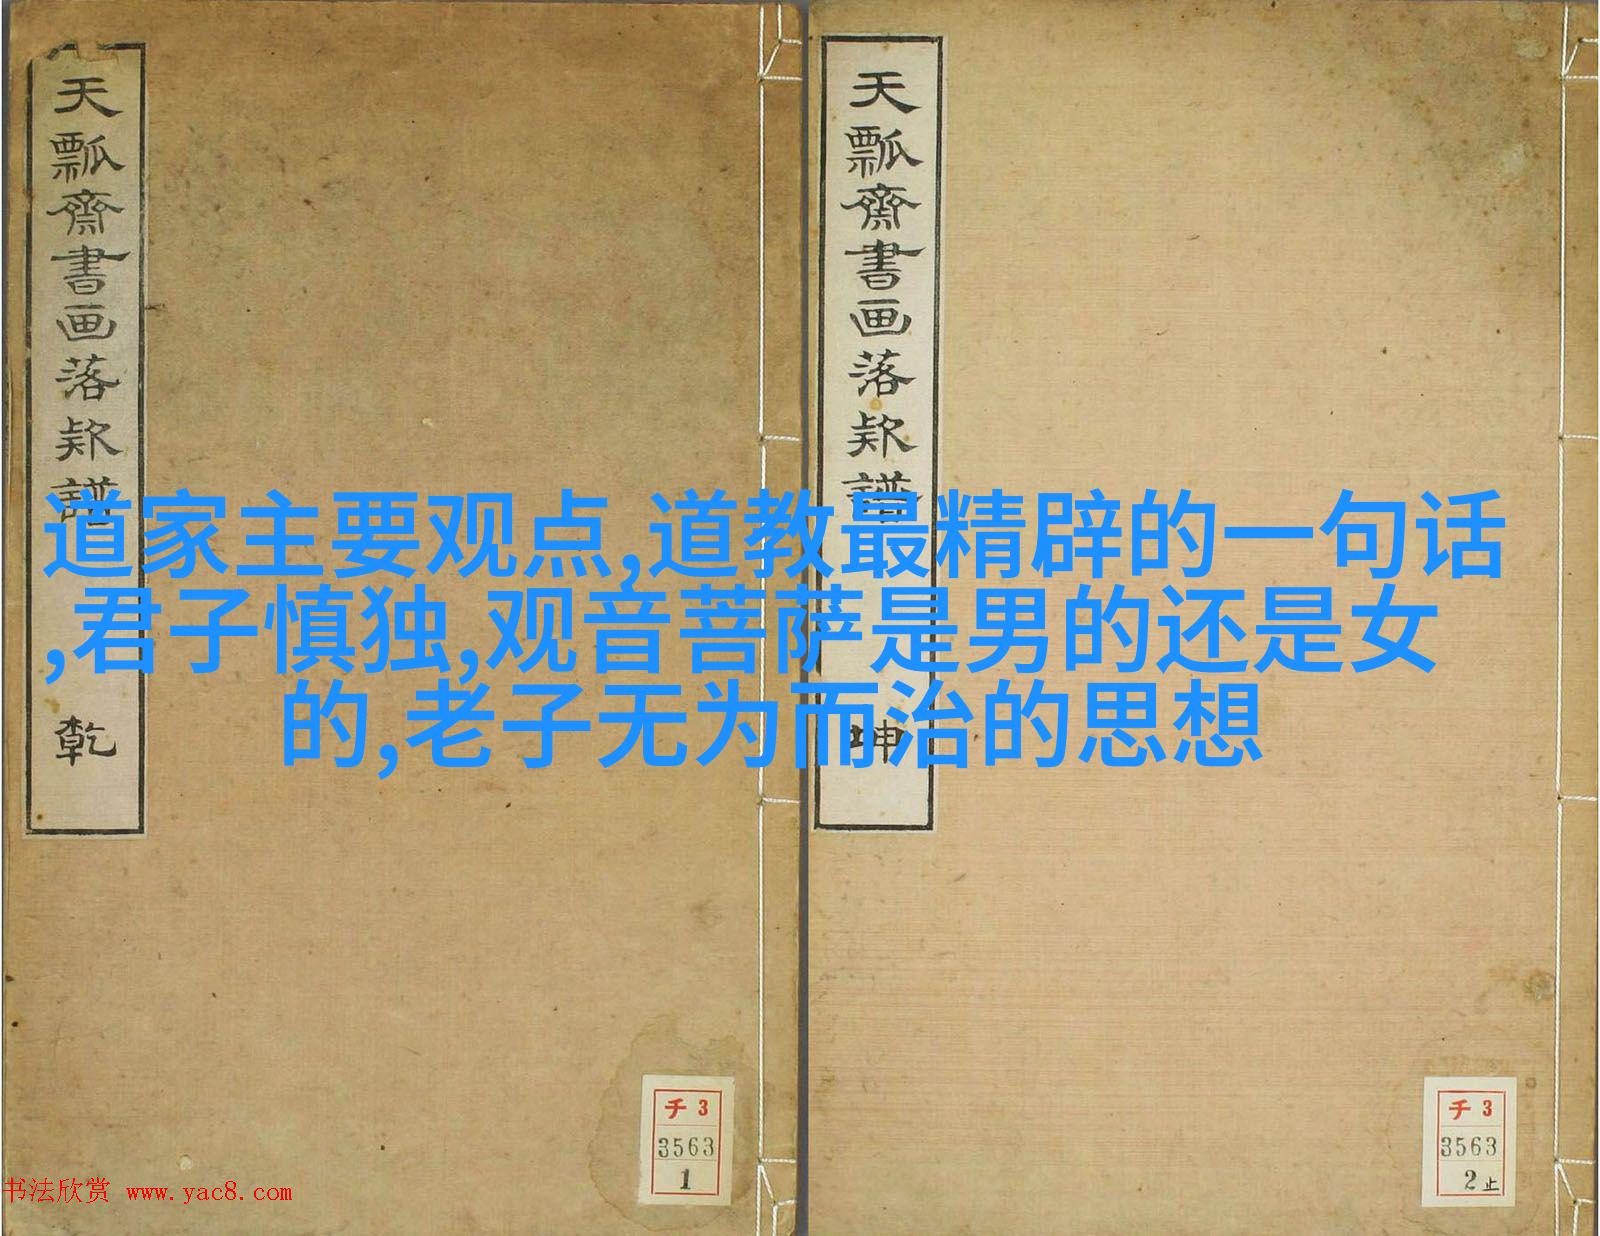 天瓢齋書画落欵譜
乾
天瓢齋書画落欵譜
坤
道家主要观点,道教最精辟的一句话
,君子慎独,观音菩萨是男的还是女
的,老子无为而治的思想
チ 3
3563
1
チ 3
3563
2止
书法欣赏 www.yac8.com